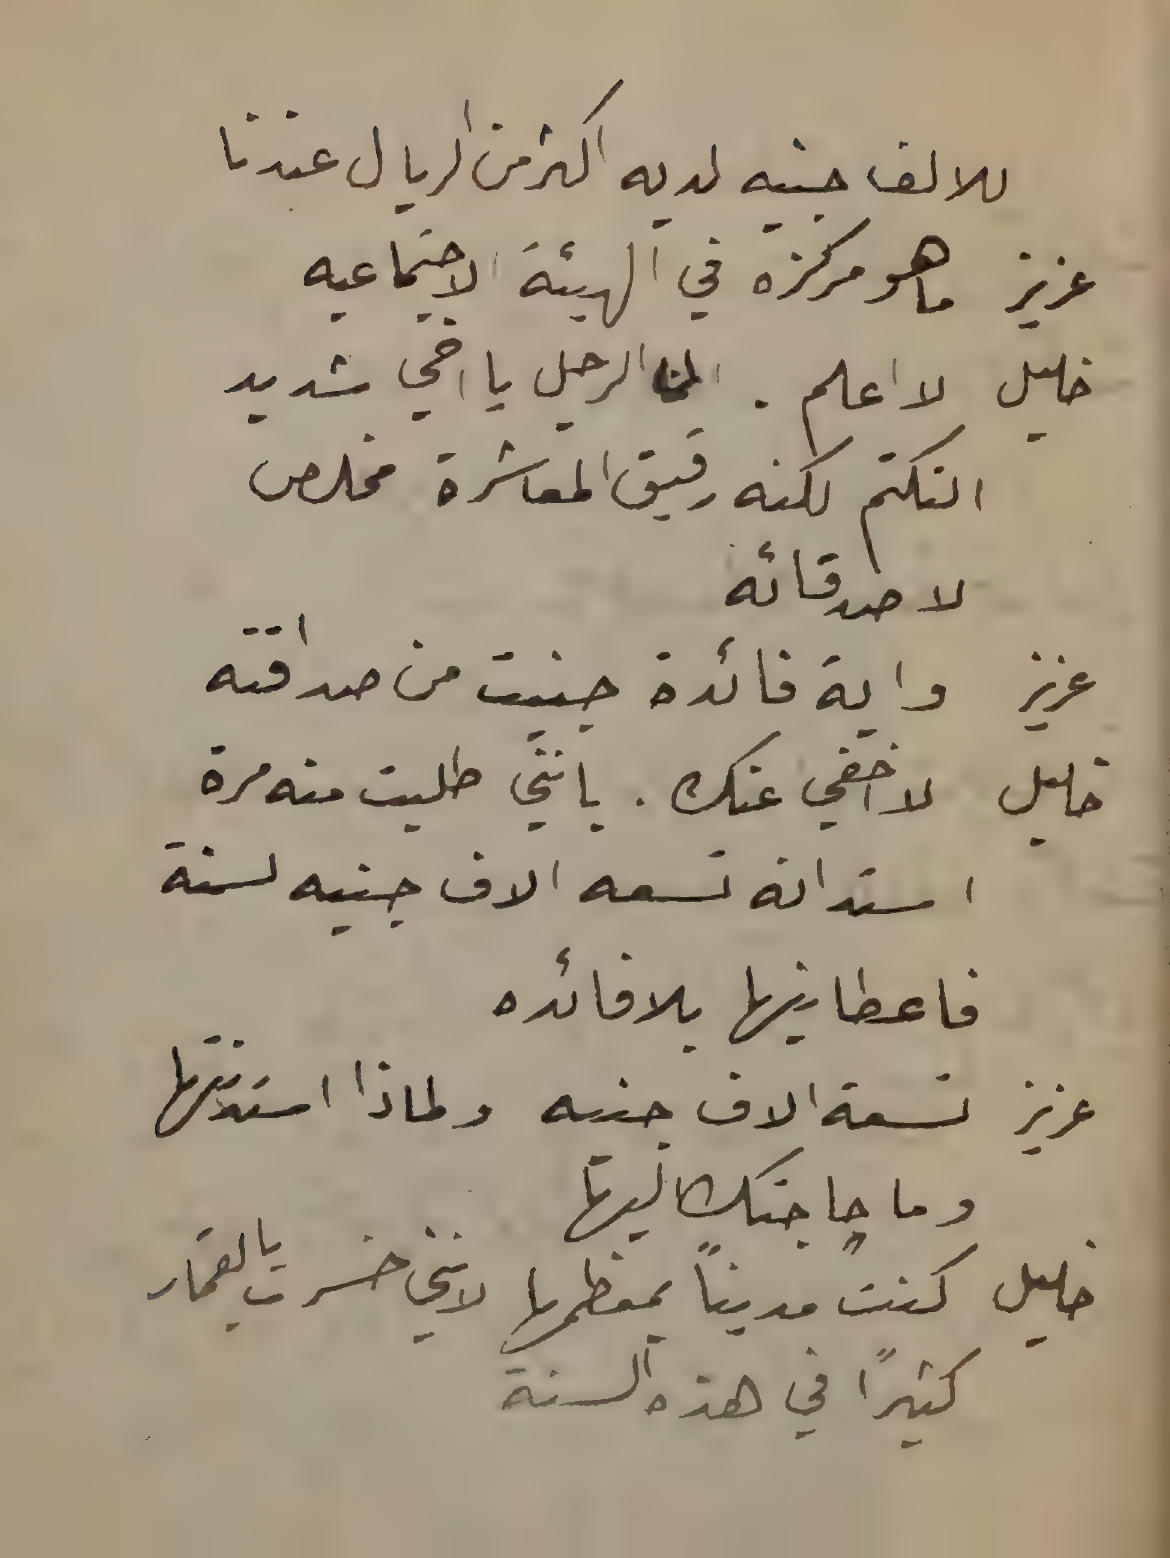 للالف جنيه لديه اكثر من الريال عندنا
عزيز ماهو مركزه في الهيئة الاجتماعيه
خليل لا اعلم . الرجل يا اخي شديد
التكتم لكنه رقيق المعاشرة مخلص
لاصدقائه
عزيز واية فائدة جنيت من صداقته
خليل لا اخفي عنك . بانني طلبت منه مرة
استدانه تسعه الاف جنيه لسنة
فاعطانيها بلا فائده
عزيز تسعة الاف جنيه ولماذا استدنتها
وما حاجتك اليها
خليل كنت مديناً بمعظمها لانني خسرت بالقمار
كثيراً في هذه السنة